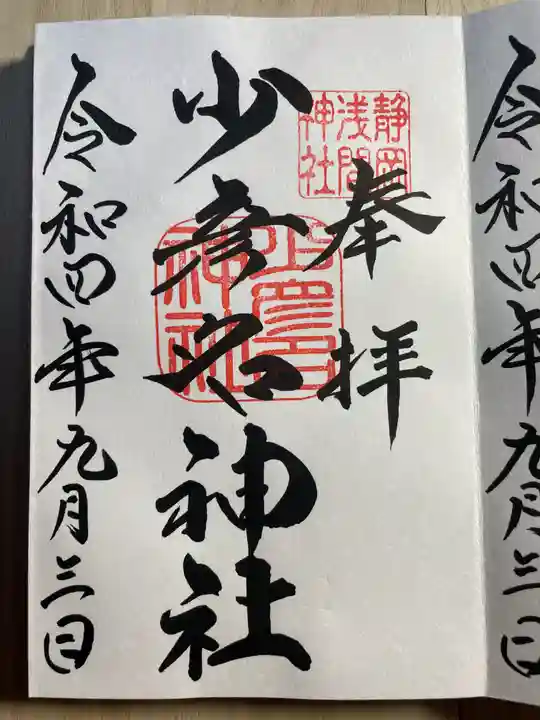 令和四年九月三日
奉拝
静岡
浅間
神社
少彦名神社
少彦名
神社
令和四年九月三日